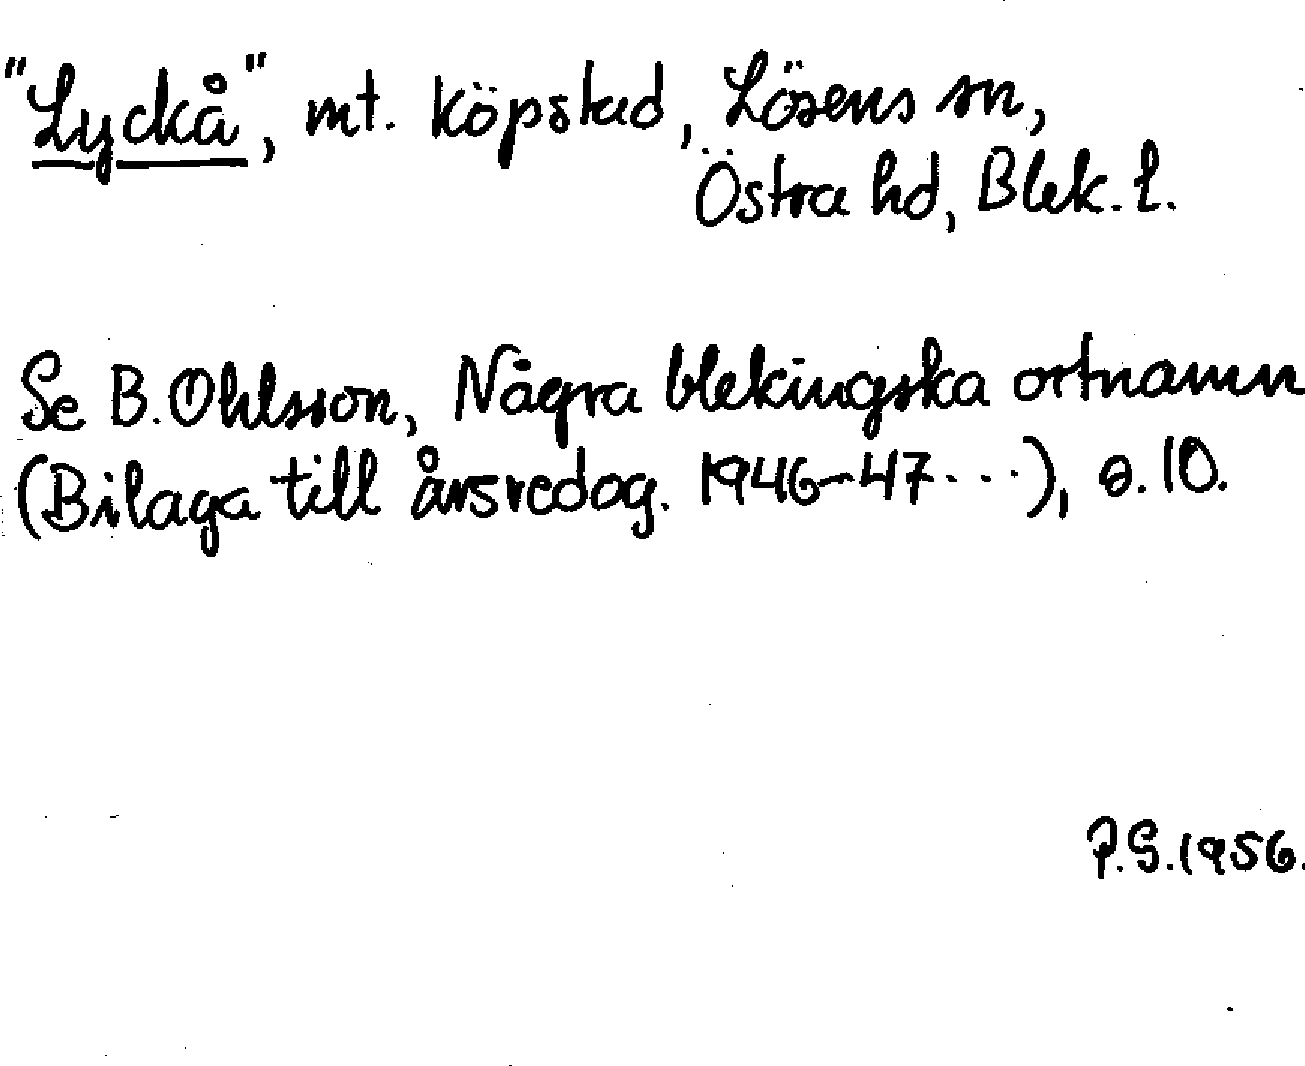 "Lyckå", mt. köpstad, Lösens sn,
Östra hd, Blek. l.
Se B. Ohlsson, Några blekingska ortnamn
(Bilaga till årsredog. 1946-47...), s. 10.
P.S. 1956.